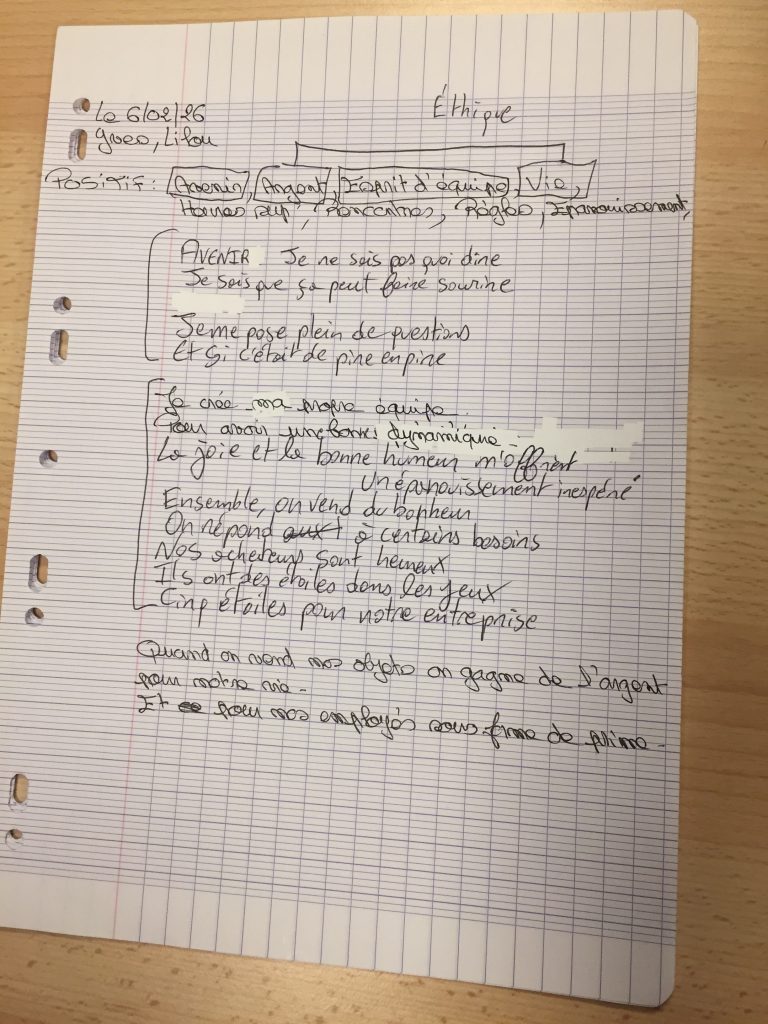 Le 6/02/26
Éthique
Lilou
POSITIF: Avenir, Argent, Esprit d'équipe, Vie,
Horaires sup', Rencontres, Règles, Epanouissement,
AVENIR Je ne sais pas quoi dire
Je sais que ça peut faire sourire
Je me pose plein de questions
Et si c'était de pire en pire
Je crée ma propre équipe.
Pour avoir une bonne dynamique.
La joie et la bonne humeur m'offrent
Un épanouissement inespéré
Ensemble, on vend du bonheur
On répond aux à certains besoins
Nos acheteurs sont heureux
Ils ont des étoiles dans les yeux
Cinq étoiles pour notre entreprise
Quand on vend nos objets on gagne de l'argent
pour notre vie.
Et pour nos employés sous forme de prime.